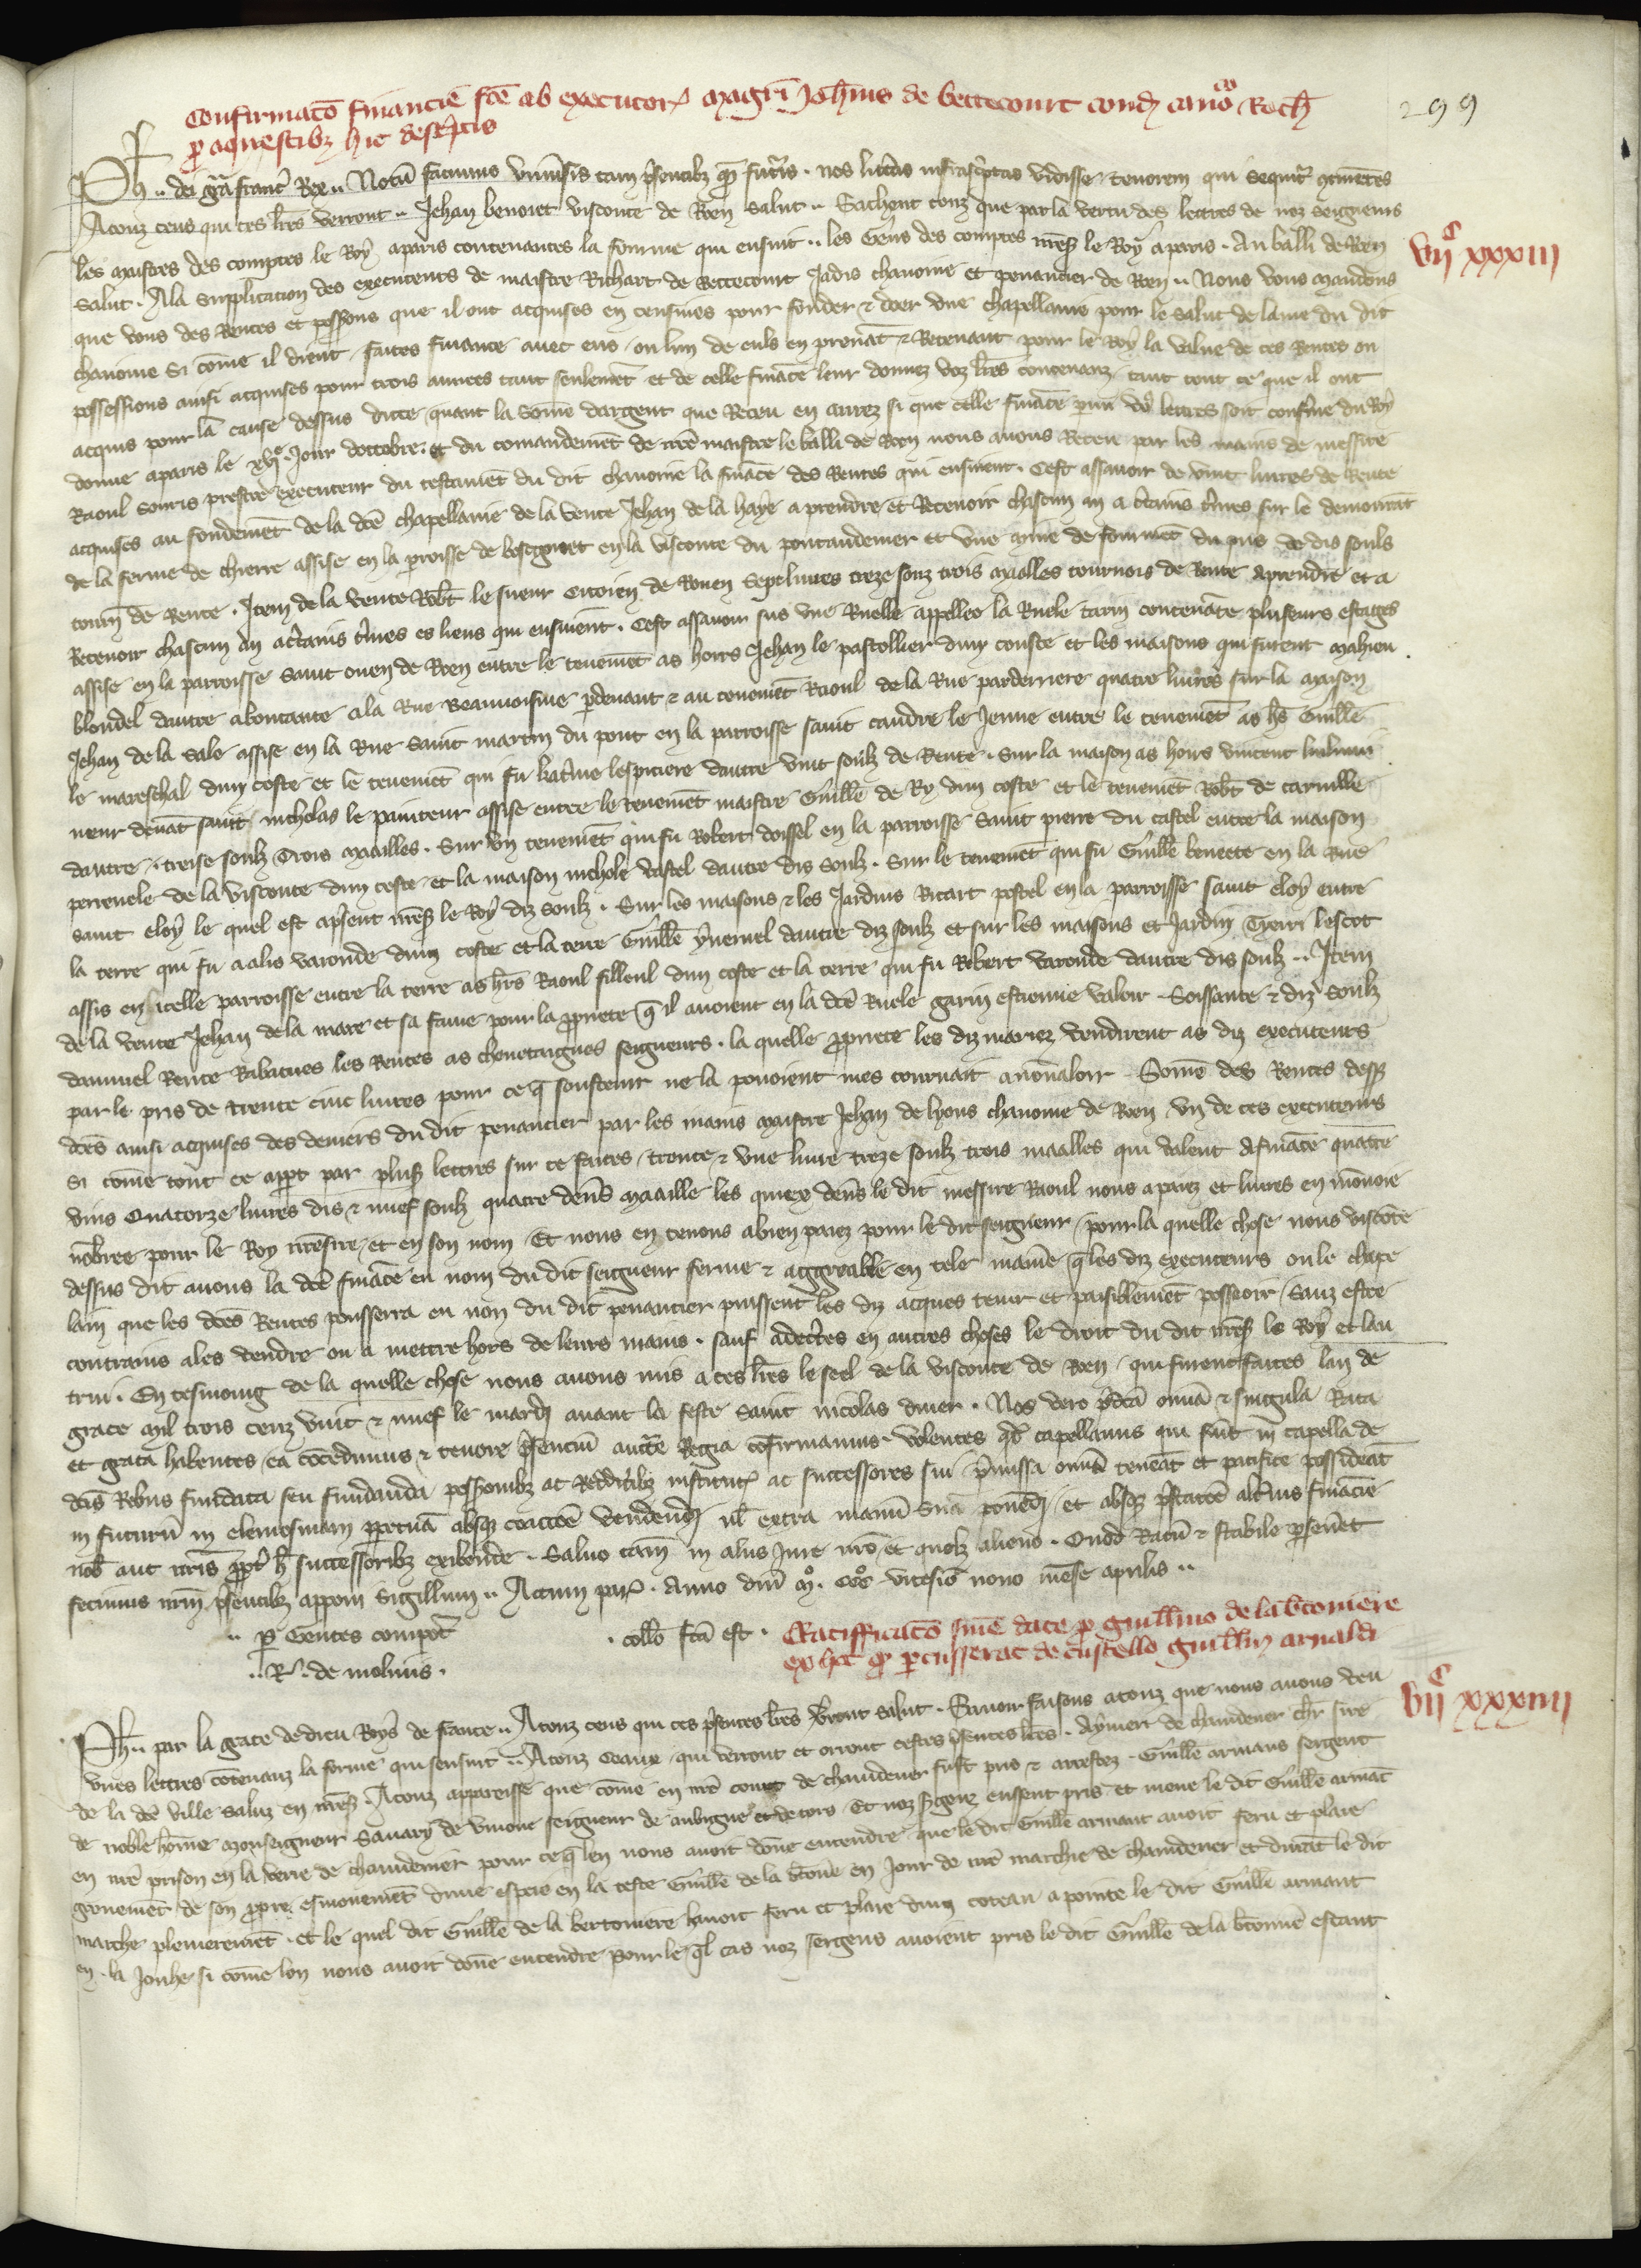 Confirmaco financie fce ab executor magri Johnis de bettecourt cond cano Roth
p aquestibz hic descptis
299
Ph .. dei gra francor Rex .. Notu facimus universis tam psentibz qm futuris . nos litteras infrascptas vidisse tenorem qui sequitr continentes
Atouz ceus qui ces lres verront .. Jehan benoiet visconte de Roen salut .. Sachent touz que par la vertu des lettres de noz seigneurs
les maistres des comptes le Roy aparis contenantes la fourme qui ensuit .. les Gens des comptes nreseigr le Roy aparis . Au balli de Roen
vijc xxxiii
salut . Ala Supplicacion des executeurs de maistre Richart de Bettecourt Jadis chanoine et penancier de Roen .. Nous vous mandons
que vous des Rentes et possions que il ont acquises en censives pour fonder z doer une chapellanie pour le salut de lame du dit
chanoine Si come il dient faites finance avec eus ou lun de euls en prenat z Recevant pour le Roy la value de ces Rentes ou
possessions ainsi acquises pour trois annees tant seulemet et de celle finace leur donnez voz lres contenanz tant tout ce que il ont
acquis pour la cause dessus dicte quant la some dargent que Receu en aurez si que celle finace par voz lettres soit confirme du Roy
donne aparis le xije Jour doctobre . et du comandemet de nre maistre le balli de Roen nous avons Receu par les mains de messire
Raoul Souris prestre executeur du testamet du dit chanoine la finace des Rentes qui ensuient . Cest assavoir de vint livres de Rente
acquises au fondemet de la dce chapellanie de la vente Jehan de la haye a prendre et Recevoir chascun an a certains tmes sur le demourat
de la ferme de chierre assise en la proisse de boscgouet en la visconte du pontaudemer et une mine de fourmet du pris de dis souls
tourn de Rente . Item de la vente Robt le sueur citoien de Rouen Sept livres treze souz trois maalles tournois de Rente aprendre et a
Recevoir chascun an acertains tmes es lieus qui ensuient . Cest assavoir sus une Ruelle appellee la Ruele tarin contenate pluseurs estages
assise en la parroisse saint ouen de Roen entre le tenemet as hoirs Jehan le pastollier duny couste et les maisons qui furent mahieu
blondel dautre aboutante a la Rue Beauvoisine pdevant z au tenemet Raoul de la Rue par derriere quatre livres sur la maison
Jehan de la Sale assise en la Rue Saint martin du pont en la parroisse saint candre le Jeune entre le tenemet as hrs Guille
le mareschal duny coste et le tenemet qui fu katine lespiciere dautre vint soulz de Rente . Sur la maison as hoirs vincent
neur devat saint nicholas le painteur assise entre le tenemet maistre Guille de Ry dun coste et le tenemet Robt de carville
dautre . treise soulz Trois maailles . Sur un tenemet qui fu Robert doissel en la parroisse Saint pierre du castel entre la maison
perrenele de la visconte dun coste et la maison nichole vastel dautre dis soulz . Sur le tenemet qui fu Guille beneete en la Rue
saint eloy le quel est apsent nreseigr le Roy diz soulz . Sur les maisons z les Jardins Ricart postel en la parroisse saint eloy entre
la terre qui fu aalis varonde dun coste et la terre Guille dautre diz soulz et sur les maisons et Jardin Thierri lescot
assis en icelle parroisse entre la terre as hrs Raoul filleul dun coste et la terre qui fu Robert varonde dautre dis soulz .. Item
de la vente Jehan de la mare et sa fame pour la ppriete q il avoient en la dce Ruele garin estienne valoir . Soissante z diz soulz
dannuel Rente Rabatues les Rentes as chevetaignes seigneurs . la quelle ppriete les diz mariez vendirent as diz executeurs
par le pris de trente cinc livres pour ce q soustenir ne la pouoient mes tournait anonvaloir . Some des Rentes dessus
dces ainsi acquises des deniers du dit penancier par les mains maistre Jehan de lyons chanoine de Roen un de ces executeurs
Si come tout ce appt par plus lettres sur ce faites trente z une livre treze soulz trois maalles qui valent afinace quatre
vins Quatorze livres dis z nuef soulz quatre dens maaille les quiex dens le dit messire Raoul nous apaiez et livres en monoie
nobree pour le Roy nresire et en son nom Et nous en tenons abien paiez pour le dit seigneur pour la quelle chose nous visconte
dessus dit avons la dce finace en nom du dit seigneur ferme z aggreable en tele manie q les diz executeurs ou le chape
lain que les dces Rentes pousserra en non du dit penancier puissent les diz acques tenir et paisiblemet possoir sanz estre
contrains ales vendre ou a mettre hors de leurs mains . sauf adectes en autres choses le droit du dit nreseigr le Roy et lau
trui . En tesmoing de la quelle chose nous avons mis a ces lres le seel de la visconte de Roen qui furent faites lan de
grace mil trois cenz vint z nuef le mardj avant la feste saint nicolas diver . Nos vero pdca omia z singula Rata
et grata habentes ea cocedimus z tenore psenciu auctte Regia cofirmamus . volentes qd capellanus qui sut in capella de
dcis Rebus fundata seu fundanda possionibz ac Redditibz institut ac successores sui pmissa omia teneat et pacifice possideat
in futuru in elemosinam ppetua absq coaccoe vendend ul extra manu sua ponedi et absq pstacoe altius finacie
nob aut nris ppt h successoribz exibende . Salvo tam in aliis Jure nro et quolz alieno . Quod Ratu z stabile pseveret
fecimus nrm psentibz apponi sigillum .. Actum par . Anno dni mo . ccco vicesio nono mese aprilis ..
.. p Gentes compot . collo fca est .
.. R . de molinis .
Ratifficaco sniae date p guillmo de la btoniere
ex hoc q pcusserat de custello guillm arnaldi
Ph .. par la grace de dieu Roys de France .. Atouz ceus qui ces psentes lres verront salut . Savoir faisons atouz que nous avons veu
vijc xxxiiij
unes lettres contenanz la forme qui sensuit .. Atouz ceaux qui verront et orront cestes psentes lres . Aymeri de chamdener chr sire
de la dce ville saluz en nreseigr . Atouz apparoisse que come en nre court de chamdener fust pris z arrestez . Guille arnaus sergent
de noble home monseigneur Savary de vivone seigneur de aubigne et de tors Et noz sergenz eussent pris et mene le dit Guille arnat
en nre prison en la verie de chamdenier pour ce q len nous avoit done entendre que le dit Guille arnaut avoit feru et plaie
grevemet de son ppre esmouvemet dune espees en la teste Guille de la btoniere en Jour de nre marchie de chamdener et durat le dit
marche plenieremet . et le quel dit Guille de la bertoniere havoit feru et plaie dun coteau a pointe le dit Guille arnaut
en . la Jouhe si come lon nous avoit done entendre pour le ql cas noz sergens avoient pris le dit Guille de la btoniere estant